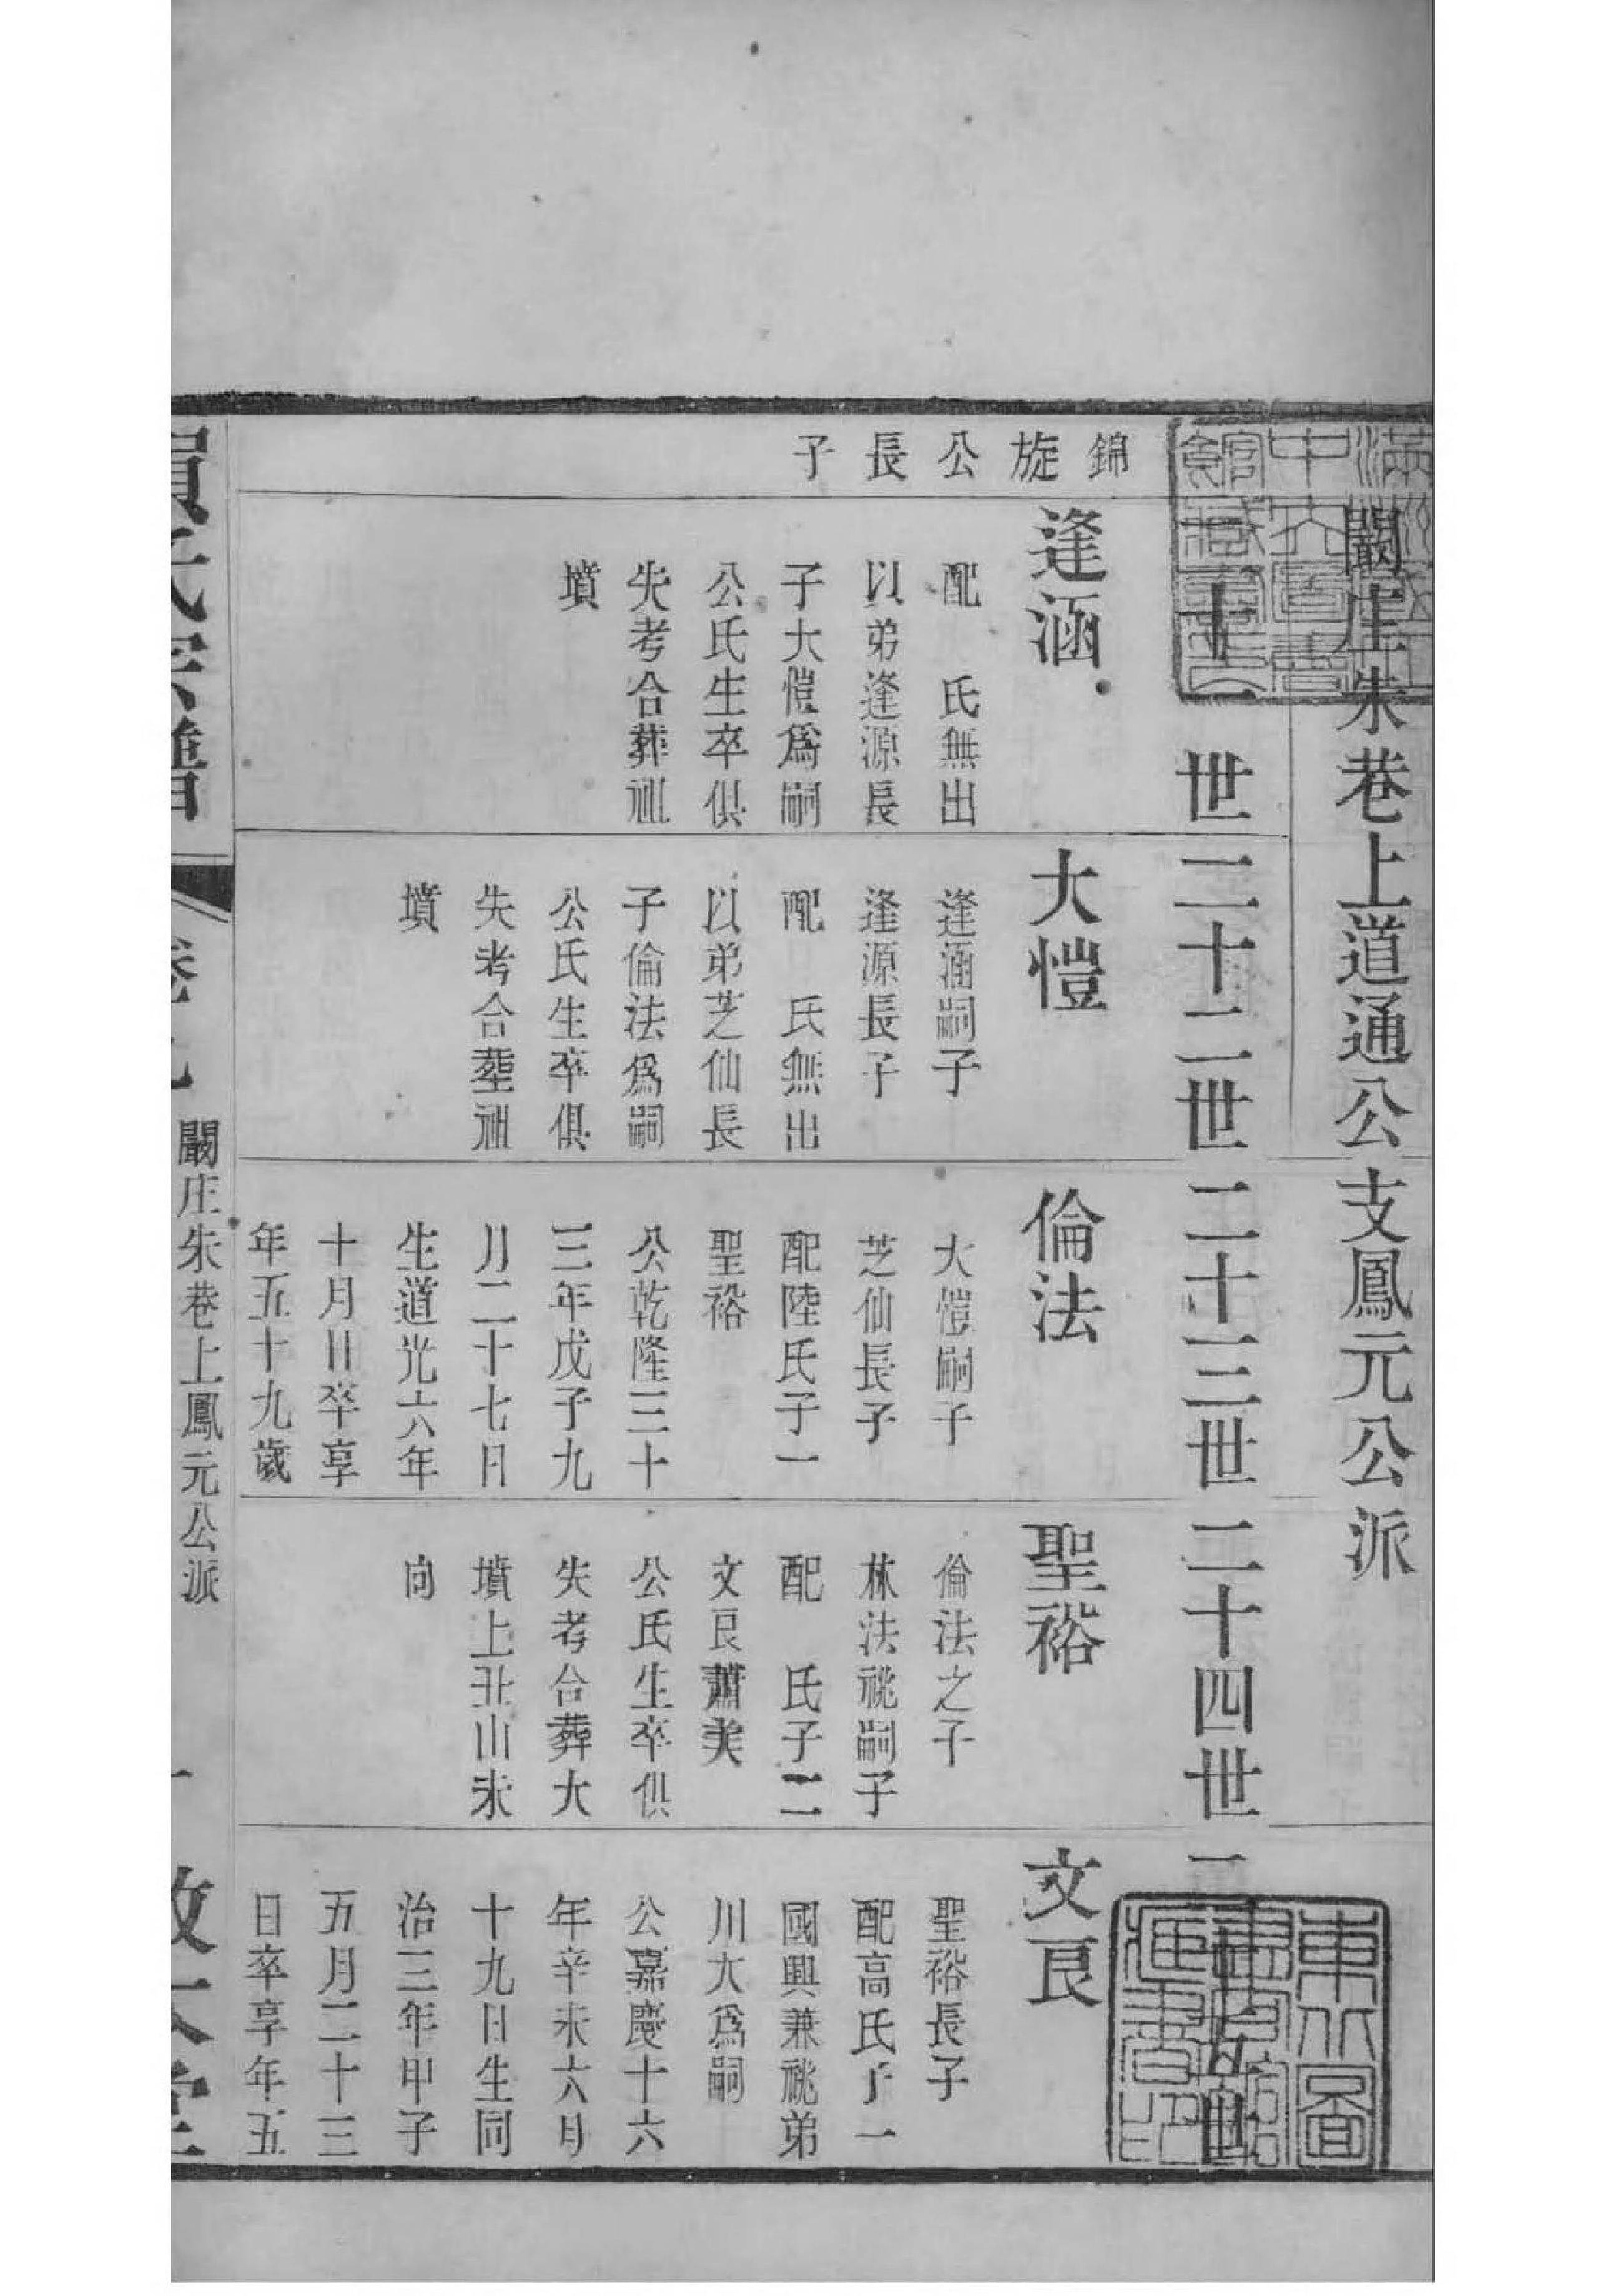 闞庄朱巷上道通公支鳳元公派
二十一世
二十二世
二十三世
二十四世
錦旋公長子
逢涵
配　氏無出
以弟逢源長
子大愷爲嗣
公氏生卒俱
失考合葬祖
墳
大愷
逢涵嗣子
逢源長子
配　氏無出
以弟芝仙長
子倫法爲嗣
公氏生卒俱
失考合塟祖
墳
倫法
大愷嗣子
芝仙長子
配陸氏子一
聖裕
公乾隆三十
三年戊子九
月二十七日
生道光六年
十月日卒享
年五十九歲
聖裕
倫法之子
林法祧嗣子
配　氏子二
文良蕭美
公氏生卒俱
失考合葬大
墳上丑山未
向
文良
聖裕長子
配高氏子一
國興兼祧弟
川大爲嗣
公嘉慶十六
年辛未六月
十九日生同
治三年甲子
五月二十三
日卒享年五
闞庄朱巷上鳳元公派